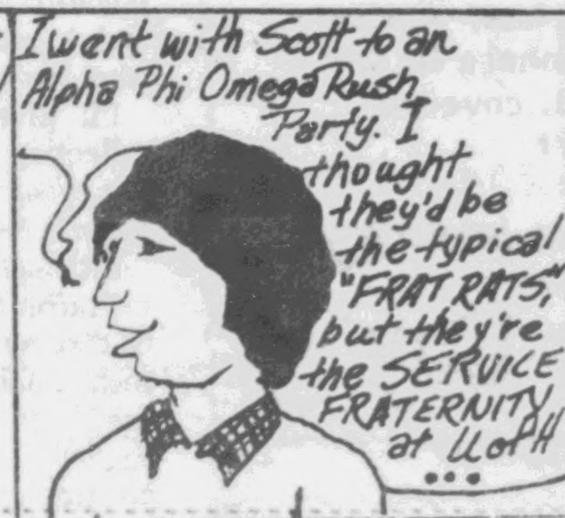 I went with Scott to an
Alpha Phi Omega Rush
Party. I
thought
they'd be
the typical
"FRAT RATS,"
but they're
the SERVICE
FRATERNITY
at U of H
...